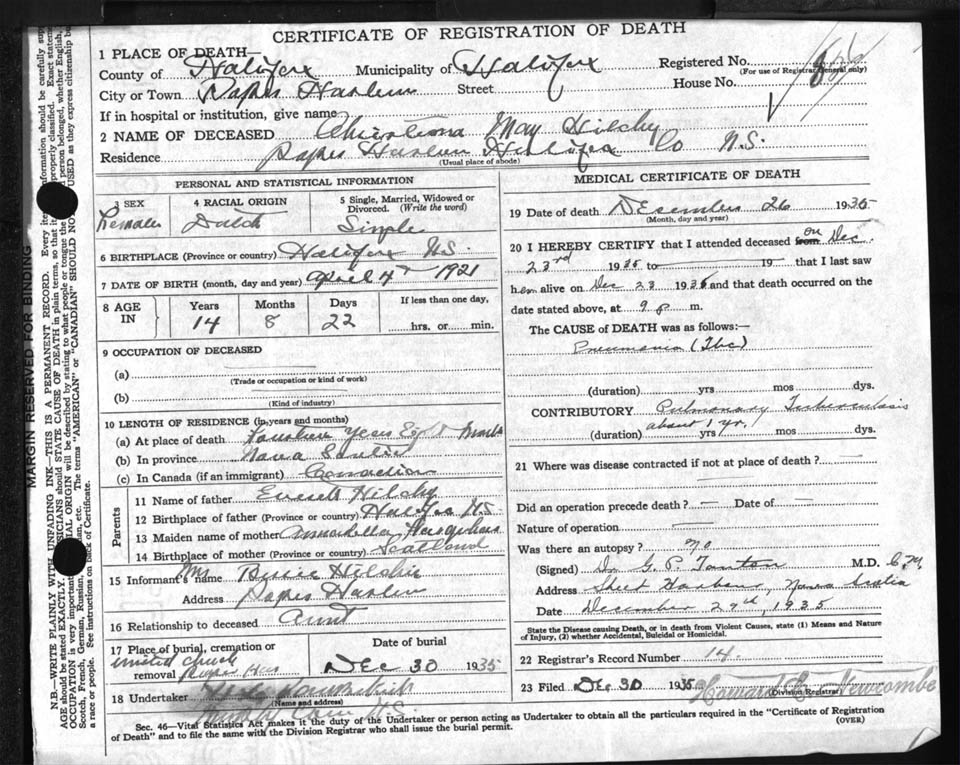 CERTIFICATE OF REGISTRATION OF DEATH
1 PLACE OF DEATH—
County of Halifax Municipality of Halifax Registered No.
(For use of Registrar General only)
City or Town Street House No.
If in hospital or institution, give name
2 NAME OF DECEASED Christiona May Hilchy
Residence Halifax Co N.S.
(Usual place of abode)
PERSONAL AND STATISTICAL INFORMATION
3 SEX 4 RACIAL ORIGIN 5 Single, Married, Widowed or Divorced. (Write the word)
Female Dutch Single
6 BIRTHPLACE (Province or country) Halifax N.S.
7 DATE OF BIRTH (month, day and year) April 4th 1921
8 AGE IN Years Months Days If less than one day,
14 8 22 hrs. or min.
9 OCCUPATION OF DECEASED
(a)
(Trade or occupation or kind of work)
(b)
(Kind of industry)
10 LENGTH OF RESIDENCE (in years and months)
(a) At place of death Fourteen years Eight Months
(b) In province Nova Scotia
(c) In Canada (if an immigrant) Canadian
Parents
11 Name of father Everett Hilchy
12 Birthplace of father (Province or country) Halifax N.S.
13 Maiden name of mother
14 Birthplace of mother (Province or country) Scotland
15 Informant's name Mrs Hilchie
Address
16 Relationship to deceased Aunt
17 Place of burial, cremation or removal Date of burial
United Church Dec 30 1935
18 Undertaker
(Name and address)
N.S.
MEDICAL CERTIFICATE OF DEATH
19 Date of death December 26 1935
(Month, day and year)
20 I HEREBY CERTIFY that I attended deceased from on Dec.
23rd 1935 to 19 that I last saw
h em alive on Dec 23 1935 and that death occurred on the
date stated above, at 9 p m.
The CAUSE of DEATH was as follows:—
Pneumonia (Tbc)
(duration) yrs mos dys.
CONTRIBUTORY Pulmonary Tuberculosis
about 1 yr.
(duration) yrs mos dys.
21 Where was disease contracted if not at place of death?
Did an operation precede death? Date of
Nature of operation
Was there an autopsy? no
(Signed) Dr G. P. M.D. C.M.
Address Sheet Harbour, Nova Scotia
Date December 29th, 1935
State the Disease causing Death, or in death from Violent Causes, state (1) Means and Nature
of Injury, (2) whether Accidental, Suicidal or Homicidal.
22 Registrar's Record Number 14.
23 Filed Dec 30 1935 Howard E. Newcombe
(Division Registrar)
Sec. 46—Vital Statistics Act makes it the duty of the Undertaker or person acting as Undertaker to obtain all the particulars required in the "Certificate of Registration
of Death" and to file the same with the Division Registrar who shall issue the burial permit. (OVER)
MARGIN RESERVED FOR BINDING
N.B.—WRITE PLAINLY WITH UNFADING INK—THIS IS A PERMANENT RECORD. Every item of information should be carefully
AGE should be stated EXACTLY. PHYSICIANS should STATE CAUSE OF DEATH in plain terms, so that it properly classified. Exact statement
OCCUPATION is very important. RACIAL ORIGIN will be described by stating to what people or tongue the person belonged, whether English,
Scotch, French, German, Russian, etc. The terms "AMERICAN" or "CANADIAN" SHOULD NOT USED as they express citizenship
a race or people. See instructions on back of Certificate.